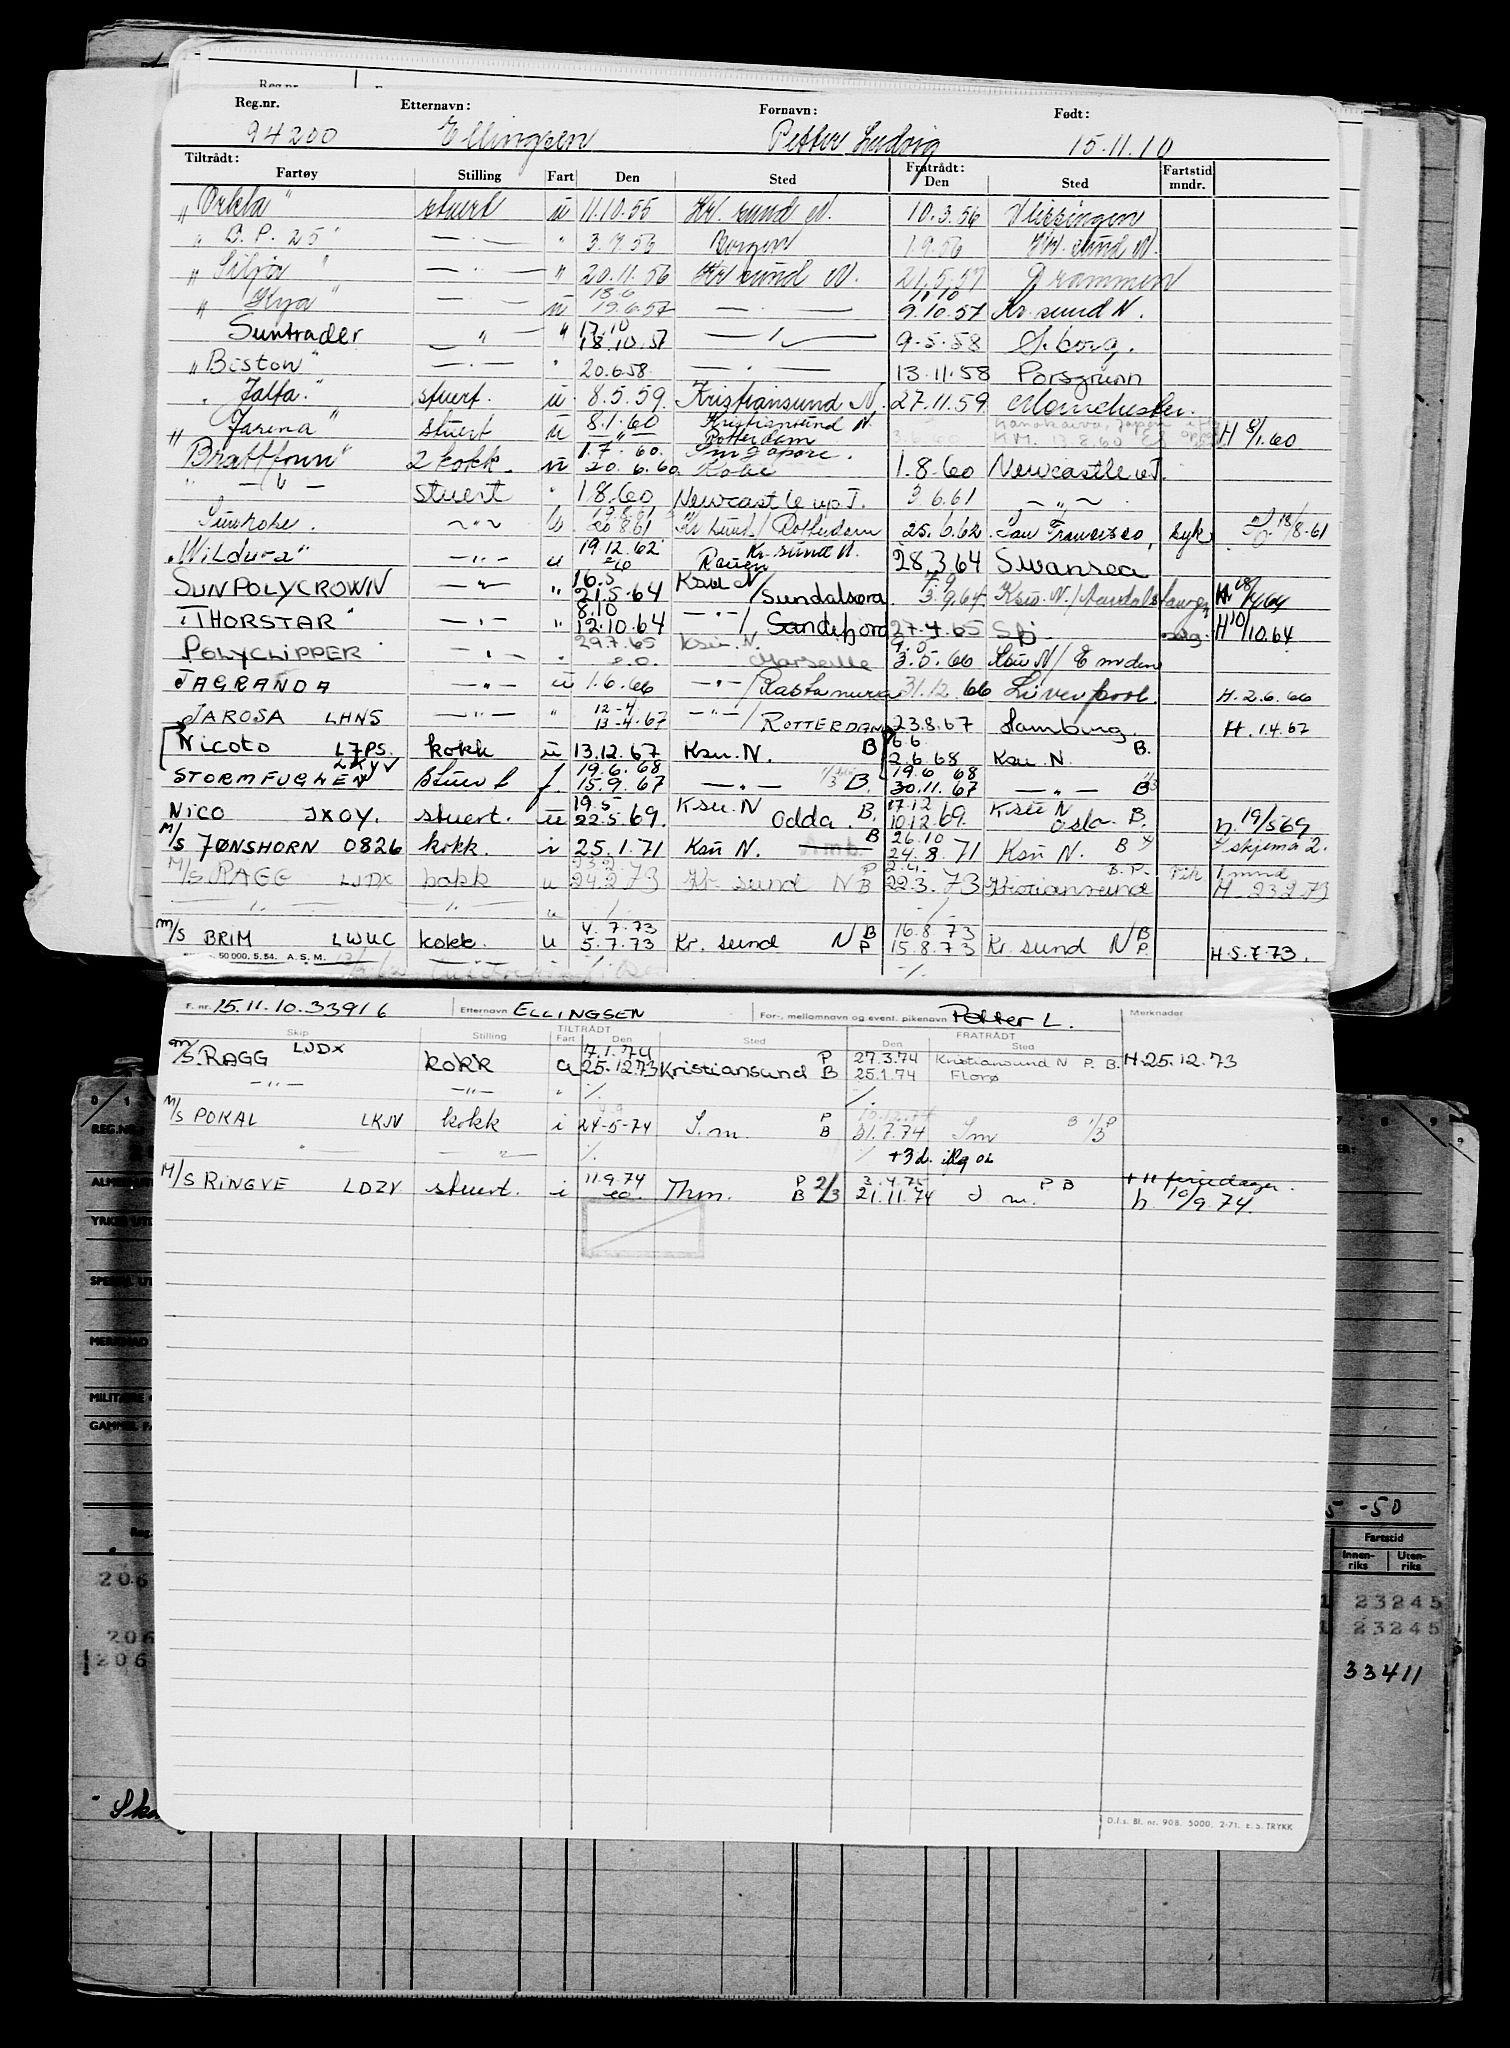 Reg.nr. Etternavn: Fornavn: Født:
94200 Ellingsen Petter Ludvig 15.11.10
Tiltrådt: Fratrådt: Fartstid
Fartøy Stilling Fart Den Sted Den Sted mndr.
"Orkla" stuert u 11.10.55 Kr. sund N. 10.3.56 Vlissingen
" B.P. 25" — . — " 3.7.56 Bergen 1.9.56 Kr. sund N.
" Silja " — . — " 20.11.56 Kr sund N. 21.5.57 Drammen
18.6 11.10
" Hya" — . — u 19.6.57 — . — 9.10.57 Kr. sund N.
17.10
Suntrader — " — " 18.10.57 — / — 9.5.58 S.borg.
"Biston" — . — " 20.6.58. — . — 13.11.58 Porsgrunn
" Jalta." stuert. u 8.5.59. Kristiansund N. 27.11.59 Manchester.
" Jarena " stuert u 8.1.60 Kristiansund N. Rotterdam K.M. 13.8.60 H 8/1.60
1.7.60. Singapore.
"Brattfonn" 2 kokk. u 20.6.60 Kobe 1.8.60 Newcastle u.T.
" — " — stuert " 1.8.60 Newcastle up T. 3 6.61 — " —
19.8.61
Sunkobe. — " — u 20.8.61 Kr sund / Rotterdam 25.6.62 San Francisco, syk 18/8-61
19.12.62 Kr. sund N.
"Wildura" — " — u Rouen 28.3.64 Swansea
16.5 Ksu N/ 1.9
SUNPOLYCROWN — " — " 21.5.64 Sundalsøra 3.9.64 Ksu. N./
8.10
"THORSTAR" — " — " 12.10.64 — " — / Sandefjord 27.4.65 Sfj. H 10/10.64
29.7.65 Ksu. N. 9.0
POLYCLIPPER — . — " Marseille 3.5.66 Ksu N/ Emden
JAGRANDA — " — u 1.6.66 — " — / Rastanura 31.12.66 Liverpool. H. 2.6.66
12-4
JAROSA LHNS — " — " 13-4-67 — " — / ROTTERDAM 23.8.67 Hamburg. H. 1.4.67
6.6
Nicoto L7PS. kokk u 13.12.67 Ksu. N. B 2.6.68 Ksu. N. B.
LKYV 19.6.68 19.6 68
STORMFUGLEN stuert f. 15.9.67 — . — 1/3 B. 30.11.67 — " — B
19.5 17.12
NICO JXOY. stuert. u 22.5 69. Ksu. N Odda. B. 10.12.69. Ksu N Oslo. B. h. 19/5 69
26.10
M/S TØNSHORN 0826 kokk. i 25.1.71 Ksu N. B 24.8.71 Ksu N. B skjema 2.
23.2 P 2.4. B. P. 1 mnd
M/S RAGG LJDX kokk u 24.2 73 Kr. sund N B 22.3.73 Kristiansund H. 23 2 73
" . " . u / . /.
4.7.73 B 16.8 73 B
M/S BRIM LWUC kokk. u 5.7.73 Kr. sund N P 15.8.73 Kr. sund N P. H.5.7.73.
50 000, 5.54. A.S.M.
F. nr. 15.11.10.33916 Etternavn ELLINGSEN For-, mellomnavn og event. pikenavn Petter L. Merknader
Skip Stilling TILTRÅDT Fart Den Sted FRATRÅDT Den Sted
7.1.74 P 27.3.74 Kristiansund N P. B.
M/S RAGG LJDX kokk u 25.12.73 Kristiansund B 25.1.74 Florø H 25.12.73
— " — — " — " /. /.
M/S POKAL LKJV kokk i 24-5-74 S.m. P B 31.7.74 Sm B 1/3 P
" — " — /. /. + 3 d.
11.9.74 P 3.4.75 P B + 11 feriedager.
M/S RINGVE LDZV stuert. i Thm. B 2/3 21.11.74 m. h. 10/9.74.
D.f.s. Bl. nr. 908. 5000, 2-71. E.S. TRYKK
0 1
7 8 9
REG.NR.
YRKE
MERKNAD
5 -50
Fartstid
Innen-riks Uten-riks
206
23245
206
23245
206
33411